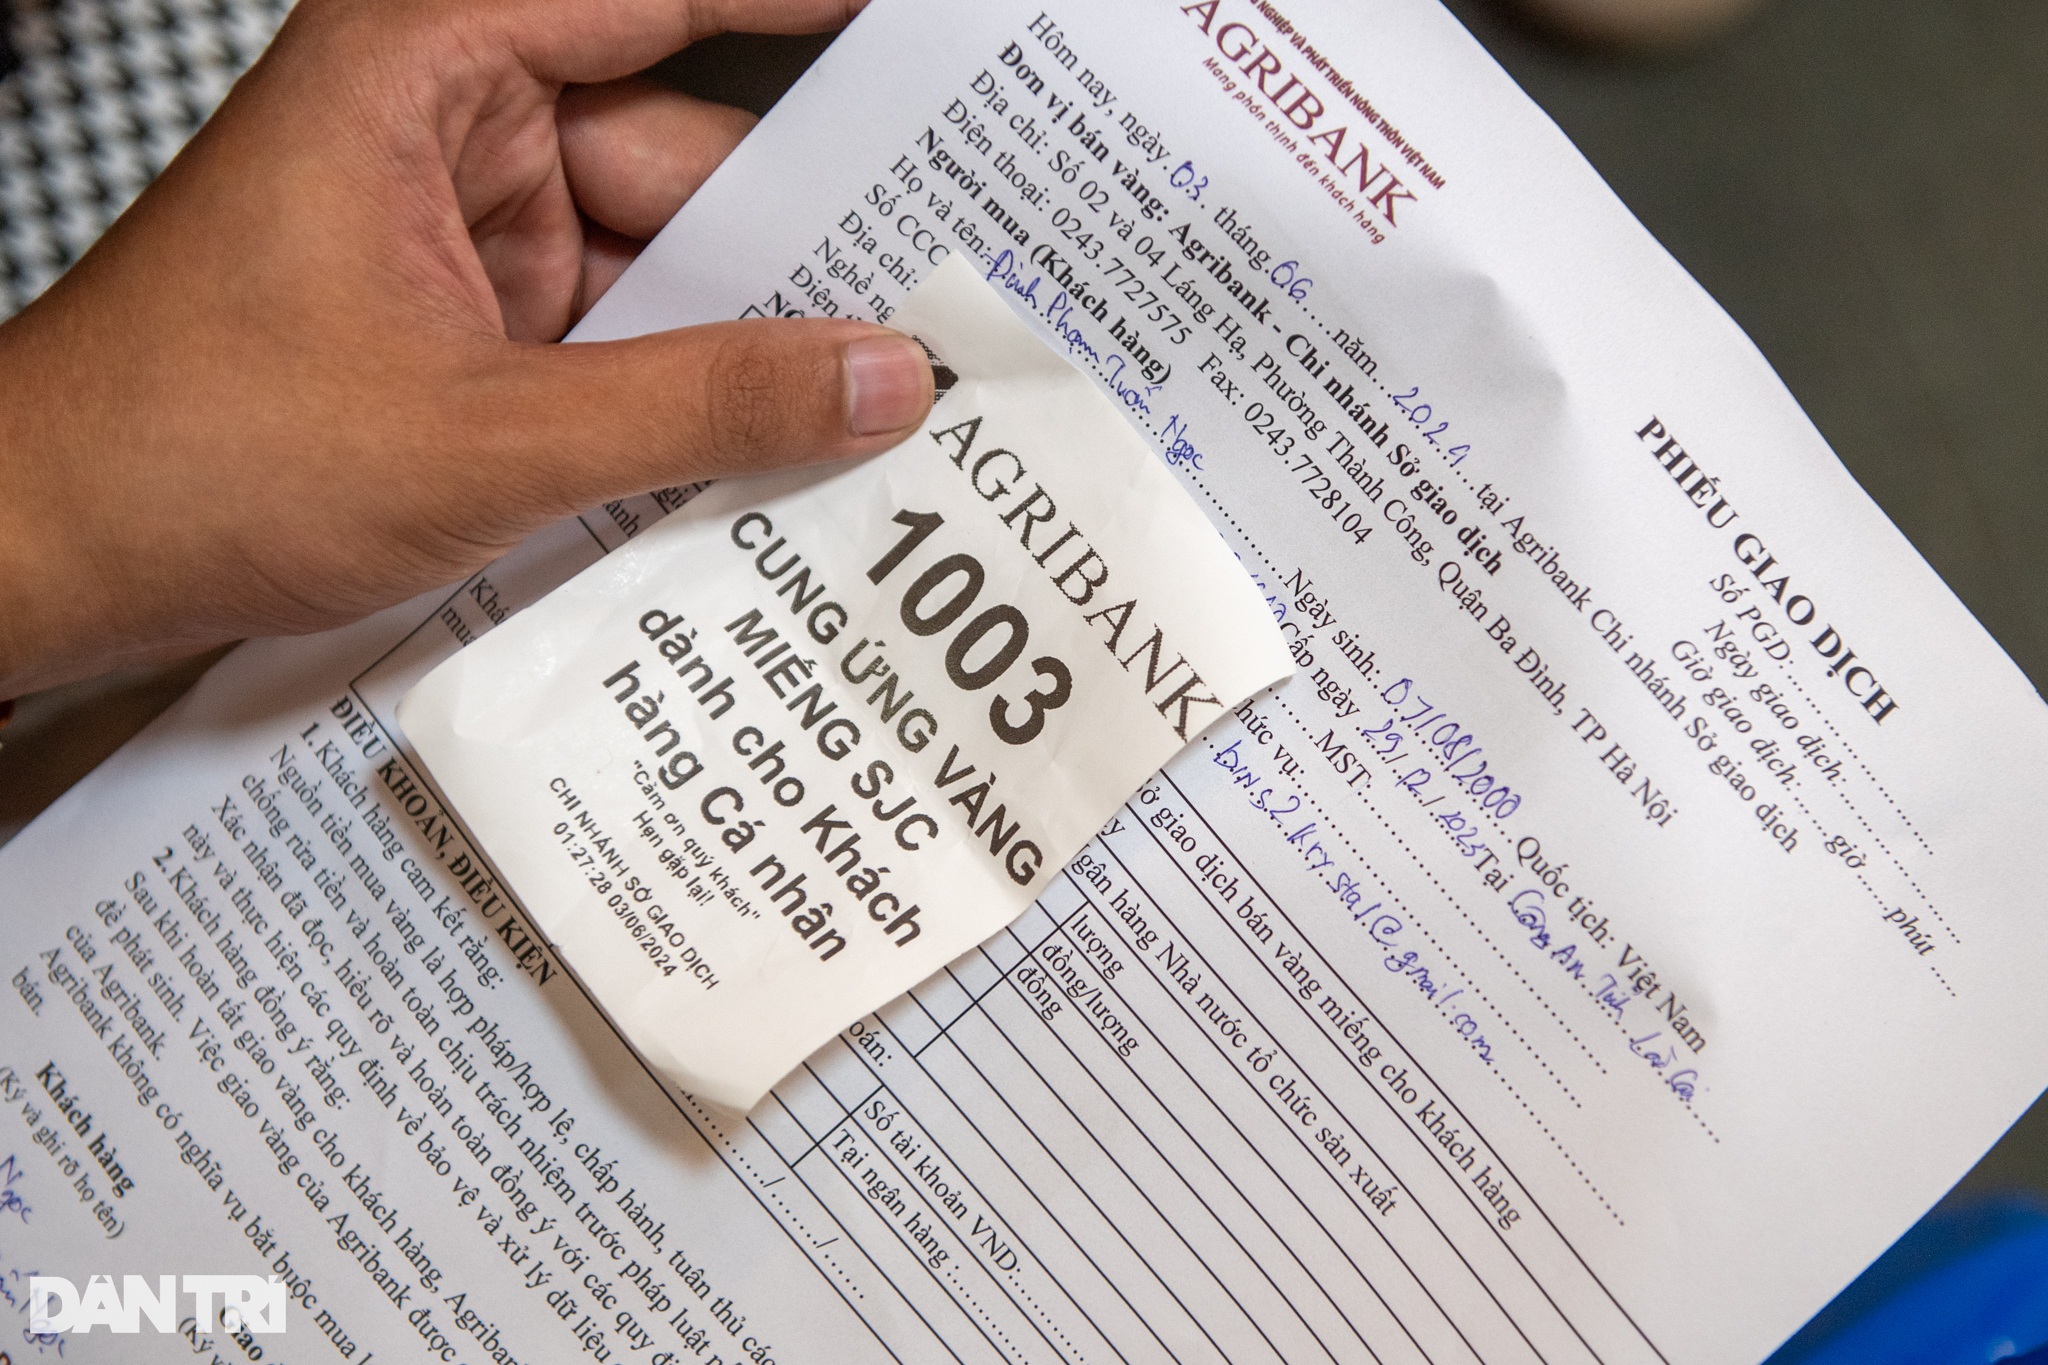 NGHIỆP VÀ PHÁT TRIỂN NÔNG THÔN VIỆT NAM
AGRIBANK
Mang phồn thịnh đến khách hàng
PHIẾU GIAO DỊCH
Số PGD:
Ngày giao dịch:
Giờ giao dịch: giờ phút
Hôm nay, ngày 03 tháng 06 năm 2024 tại Agribank Chi nhánh Sở giao dịch
Đơn vị bán vàng: Agribank - Chi nhánh Sở giao dịch
Địa chỉ: Số 02 và 04 Láng Hạ, Phường Thành Công, Quận Ba Đình, TP Hà Nội
Điện thoại: 0243.7727575 Fax: 0243.7728104
Người mua (Khách hàng)
Họ và tên: Đinh Phạm Tuấn Ngọc Ngày sinh: 07/08/2000 Quốc tịch: Việt Nam
Số CCC Cấp ngày 29/12/2023 Tại Công An Tỉnh Lào Cai
Địa chỉ: MST:
Nghề ng hức vụ:
Điện
AGRIBANK
1003
CUNG ỨNG VÀNG
MIẾNG SJC
dành cho Khách
hàng Cá nhân
"Cảm ơn quý khách"
Hẹn gặp lại!
CHI NHÁNH SỞ GIAO DỊCH
01:27:28 03/06/2024
ở giao dịch bán vàng miếng cho khách hàng
gân hàng Nhà nước tổ chức sản xuất
lượng
đồng/lượng
đồng
oán:
Số tài khoản VND:
Tại ngân hàng :
Khá
mu
ĐIỀU KHOẢN, ĐIỀU KIỆN
1. Khách hàng cam kết rằng:
Nguồn tiền mua vàng là hợp pháp/hợp lệ, chấp hành, tuân thủ các
chống rửa tiền và hoàn toàn chịu trách nhiệm trước pháp luật
Xác nhận đã đọc, hiểu rõ và hoàn toàn đồng ý với các quy đị
này và thực hiện các quy định về bảo vệ và xử lý dữ liệu
2. Khách hàng đồng ý rằng:
Sau khi hoàn tất giao vàng cho khách hàng, Agriban
đề phát sinh. Việc giao vàng của Agribank được
của Agribank.
Agribank không có nghĩa vụ bắt buộc mua
bán.
Khách hàng
(Ký và ghi rõ họ tên)
Ngọc
Giao
(Ký
DÂN TRÍ